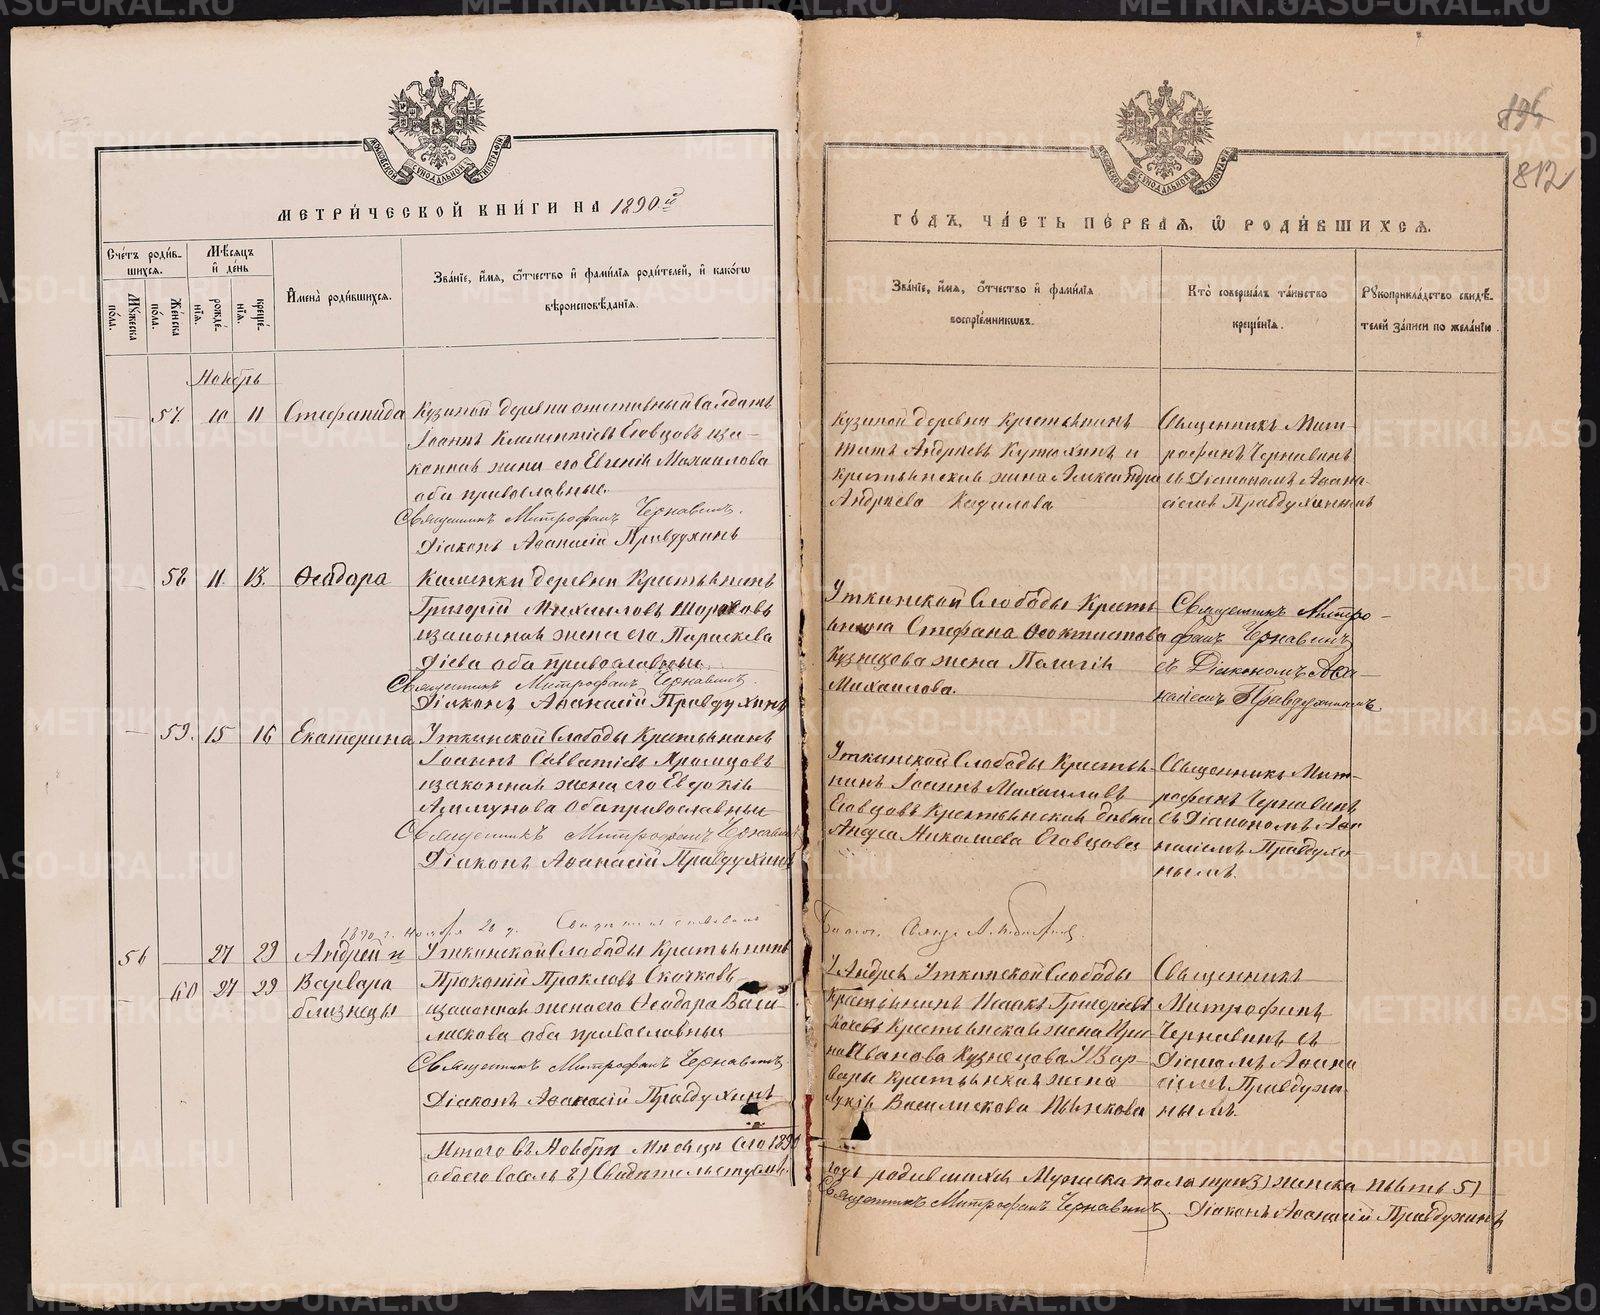 МЕТРИ́ЧЕСКОЙ КНИ́ГИ НА 1890й
Сче́тъ роди́в-
шихся.
Мѣсяцъ
и҆ де́нь
Мꙋжеска
пола.
Женска
пола.
рожде́-
нїя.
креще́-
нїя.
И҆мена̀ роди́вшихся.
Зва́нїе, и҆́мя, ѻ҆́тчество и҆ фами́лїя роди́телей, и҆ како́гѡ
вѣроисповѣ́данїя.
Ноябрь
57. 10 11 Стефанида
Кузиной деревни отставный солдатъ
Іоаннъ Климентіевъ Еговцовъ иза-
конная жена его Евгенія Михаилова
оба православные.
Священникъ Митрофанъ Чернавинъ.
Діаконъ Аѳанасій Правдухинъ
58 11. 13. Ѳеодора
Каменки деревни Крестьянинъ
Григорій Михаиловъ
изаконная жена его Параскева
оба православныи.
Священникъ Митрофанъ Чернавинъ.
Діаконъ Аѳанасій Правдухинъ
59. 15 16 Екатерина
Уткинской Слободы Крестьянинъ
Іоаннъ Савватіевъ
изаконная жена его Евдокія
оба православныи
Священникъ Митрофанъ Чернавинъ
Діаконъ Аѳанасій Правдухинъ
1890 г. Ноября 20 д.
56 27 29 Андрей и
60 27 29 Варвара
близнецы
Уткинской Слободы Крестьянинъ
Прокопій Прокловъ Скочковъ
изаконная жена его Ѳеодора Васи-
лискова оба православныи
Священникъ Митрофанъ Чернавинъ.
Діаконъ Аѳанасій Правдухинъ
Итого въ Ноябрѣ Месяцѣ сего 1890
обоего восемь 8) Свидѣтельствуемъ
ГО́ДЪ, ЧА́СТЬ ПЕ́РВАЯ, Ѡ҆ РОДИ́ВШИХСЯ.
812
Зва́нїе, и҆́мя, ѻ҆́тчество и҆ фами́лїя
воспрїе́мникѡвъ.
Кто̀ соверша́лъ та́инство
креще́нїя.
Рꙋкоприкла́дство свидѣ́-
телей за́писи по жела́нїю.
Кузиной деревни Крестьянинъ
Титъ Андреевъ Кутюхинъ и
Крестьянская жена Александра
Андреева Кадилова
Священникъ Мит-
рофанъ Чернавинъ
съ Діакономъ Аѳана-
сіемъ Правдухинымъ
Уткинской Слободы Кресть-
янина Стефана Ѳеоктистова
Кузнецова жена Пелагія
Михаилова.
Священникъ Митро-
фанъ Чернавинъ
съ Діакономъ Аѳа-
насіемъ Правдухинымъ.
Уткинской Слободы Крестья-
нинъ Іоаннъ Михаиловъ
Еговцовъ Крестьянская девка
Николаева Еговцова
Священникъ Мит-
рофанъ Чернавинъ
съ Діакономъ Аѳа-
насіемъ Правдухи-
нымъ.
У Андрея Уткинской Слободы
Крестьянинъ Исаакъ Григорьевъ
Крестьянская жена Ири-
на Иванова Кузнецова У Вар-
вары Крестьянская жена
Василискова
Священникъ
Митрофанъ
Чернавинъ съ
Аѳана
сіемъ Правдухи-
нымъ.
годъ родившихся Мужеска пола три 3) женска пять 5)
Священникъ Митрофанъ Чернавинъ. Діаконъ Аѳанасій Правдухинъ
METRIKI.GASO-URAL.RU